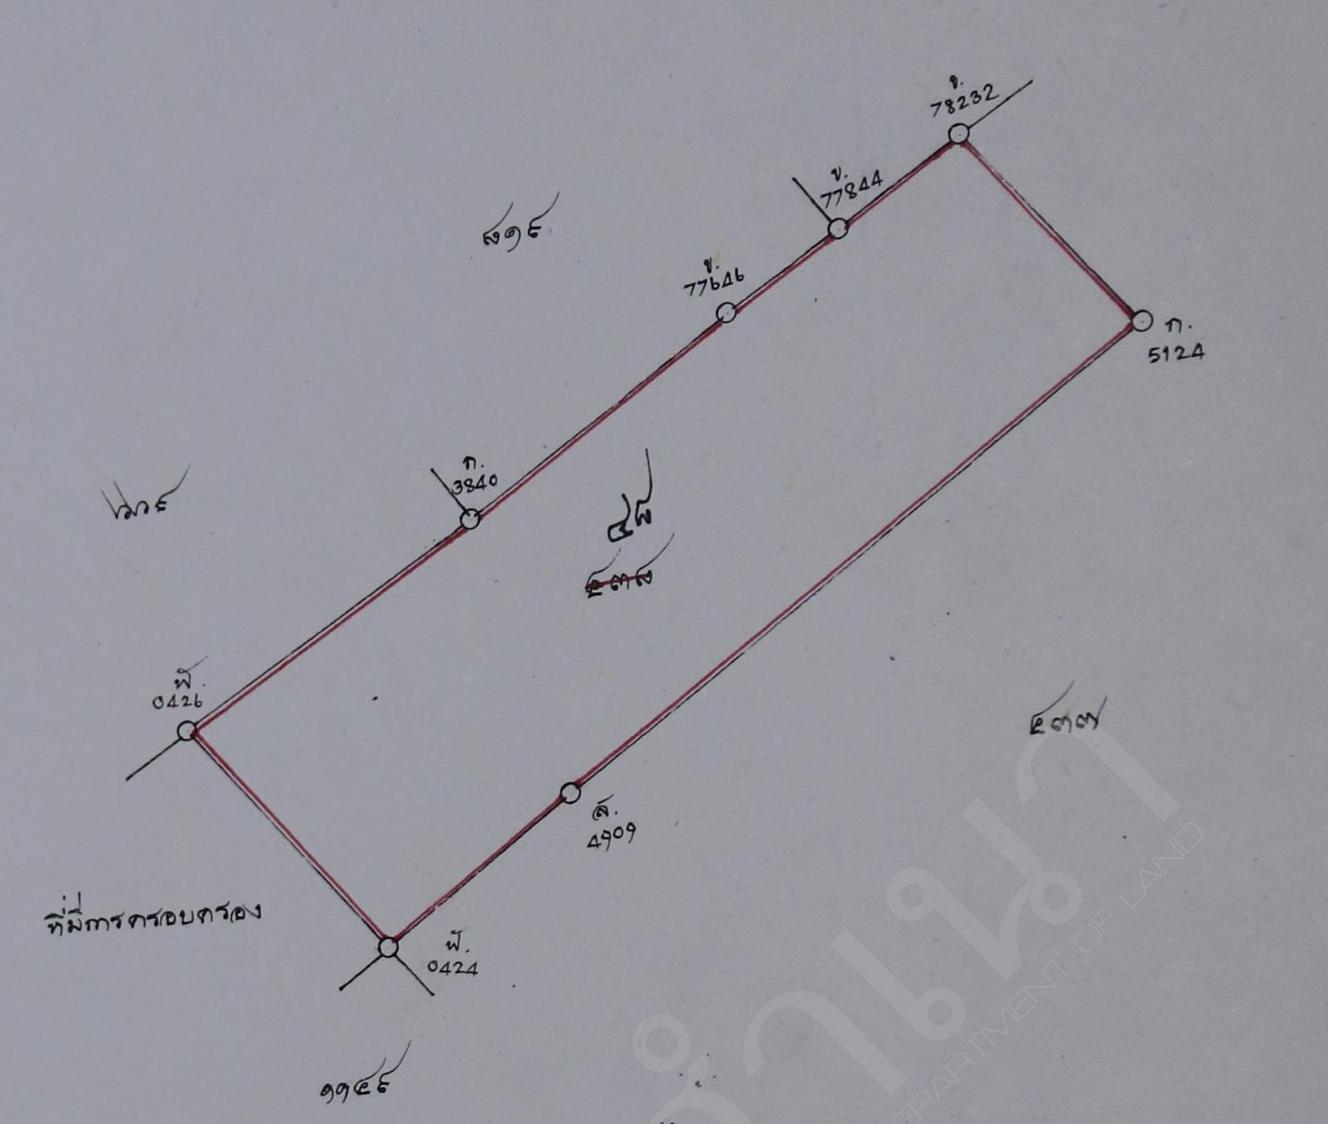 ข.
78232
ข.
77844
๘๑๙
ข.
77646
ก.
5124
ก.
3840
๔๘
๕๓๘
0426
๕๓๗
4909
ที่มีการครอบครอง
0424
๑๑๔๙
สำเนา
DEPARTMENT OF LAND